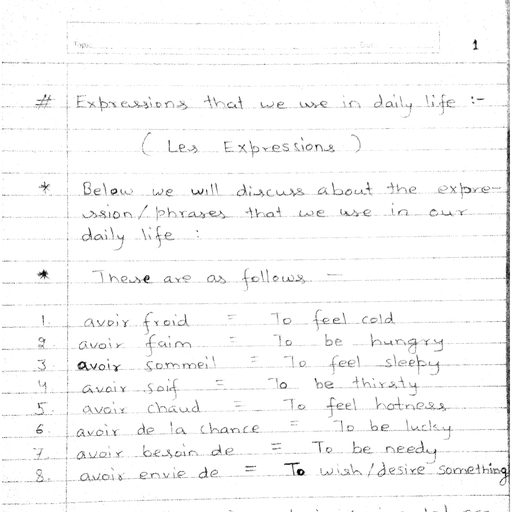 1
# Expressions that we use in daily life :-
( Les Expressions )
* Below we will discuss about the expre-
ssion/phrases that we use in our
daily life :
* These are as follows -
1. avoir froid = To feel cold
2 avoir faim = To be hungry
3. avoir sommeil = To feel sleepy
4 avoir soif = To be thirsty
5. avoir chaud = To feel hotness
6. avoir de la chance = To be lucky
7. avoir besoin de = To be needy
8. avoir envie de = To wish/desire something